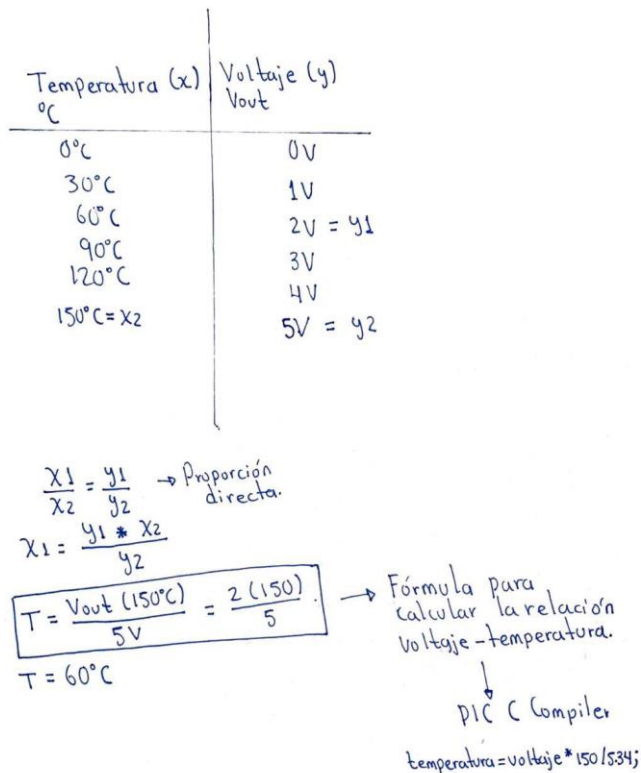 Temperatura (x) Voltaje (y)
°C Vout
0°C 0V
30°C 1V
60°C 2V = y1
90°C 3V
120°C 4V
150°C = x2 5V = y2
x1/x2 = y1/y2 → Proporción directa.
x1 = y1 * x2 / y2
T = Vout (150°C) / 5V = 2 (150) / 5 . → Fórmula para
calcular la relación
voltaje - temperatura.
T = 60°C
↓
PIC C Compiler
temperatura=voltaje*150/5.34;